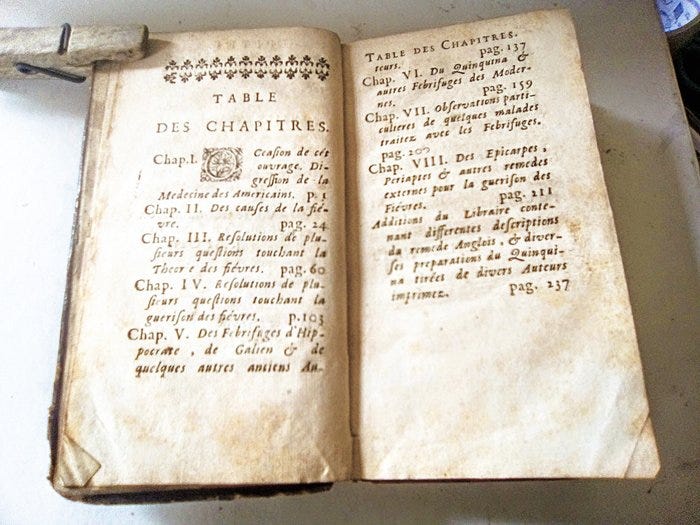 TABLE
DES CHAPITRES.
Chap. I. Occasion de cét
ouvrage. Di-
gression de la
Medecine des Americains. p. 1
Chap. II. Des causes de la fié-
vre. pag. 24
Chap. III. Resolutions de plu-
sieurs questions touchant la
Theorie des fiévres. pag. 60
Chap. IV. Resolutions de plu-
sieurs questions touchant la
guerison des fiévres. p. 103
Chap. V. Des Febrifuges d'Hip-
pocrate, de Galien & de
quelques autres anciens Au-
TABLE DES CHAPITRES.
teurs. pag. 137
Chap. VI. Du Quinquina &
autres Febrifuges des Moder-
nes. pag. 159
Chap. VII. Observations parti-
culieres de quelques malades
traitez avec les Febrifuges.
pag. 207
Chap. VIII. Des Epicarpes,
Periaptes & autres remedes
externes pour la guerison des
Fiévres. pag. 211
Additions du Libraire conte-
nant differentes descriptions
du remede Anglois, & diver-
ses preparations du Quinqui-
na tirées de divers Auteurs
imprimez. pag. 237